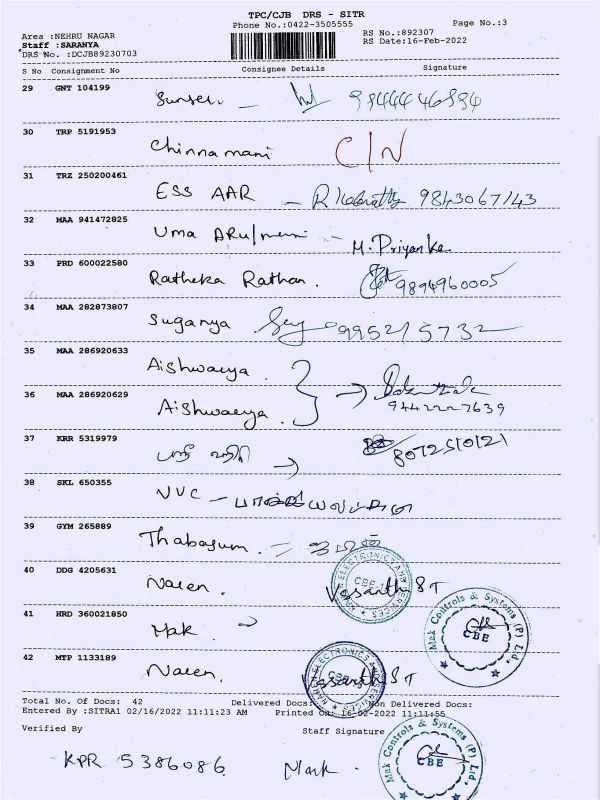 TPC/CJB DRS - SITR
Phone No.:0422-3505555
Page No.:3
Area :NEHRU NAGAR
RS No.:892307
Staff :SARANYA
RS Date:16-Feb-2022
DRS No. :DCJB89230703
S No Consignment No Consignee Details Signature
29 GNT 104199
30 TRP 5191953
Chinnamani C/N
31 TRZ 250200461
ESS AAR - 9843067143
32 MAA 941472825
Uma - M. Priyanka
33 PRD 600022580
Ratheka Rathan. 9894960005
34 MAA 282873807
Suganya 995215732
35 MAA 286920633
Aishwarya
36 MAA 286920629
Aishwarya
37 KRR 5319979
8072510121
38 SKL 650355
NVC -
39 GYM 265889
Thabasum.
40 DDG 4205631
Naren. Vasanth S T
41 HRD 360021850
Mak.
Mak Controls & Systems (P) Ltd.,
CBE
42 MTP 1133189
Naren. Vasanth S T
Total No. Of Docs: 42 Delivered Docs: Non Delivered Docs:
Entered By :SITRA1 02/16/2022 11:11:23 AM Printed On: 16-02-2022 11:11:55
Verified By Staff Signature
Mak Controls & Systems (P) Ltd.,
CBE
KPR 5386086 Mark.